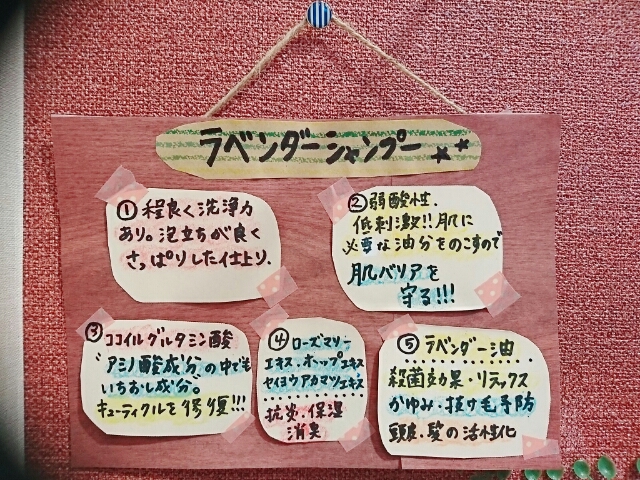 ラベンダーシャンプー
① 程良く洗浄力
あり。泡立ちが良く
さっぱりした仕上り.
② 弱酸性.
低刺激!!肌に
必要な油分をのこすので
肌バリアを
守る!!!
③ ココイルグルタミン酸
"アミノ酸成分"の中でも
いちおし成分。
キューティクルを修復!!!
④ ローズマリー
エキス.ホップエキス
セイヨウアカマツエキス
抗炎.保湿
消臭
⑤ ラベンダー油
殺菌効果・リラックス
かゆみ.抜け毛予防
頭皮.髪の活性化